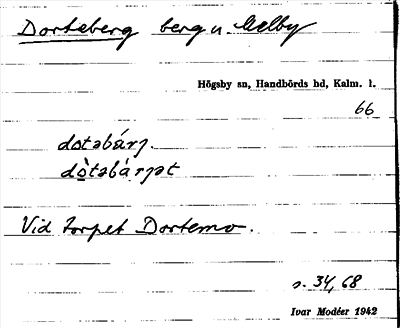 Dorteberg berg u. Melby
Högsby sn, Handbörds hd, Kalm. l.
66
dotəbárj.
dòtəbárjət
Vid torpet Dortemo.
s. 34, 68
Ivar Modéer 1942